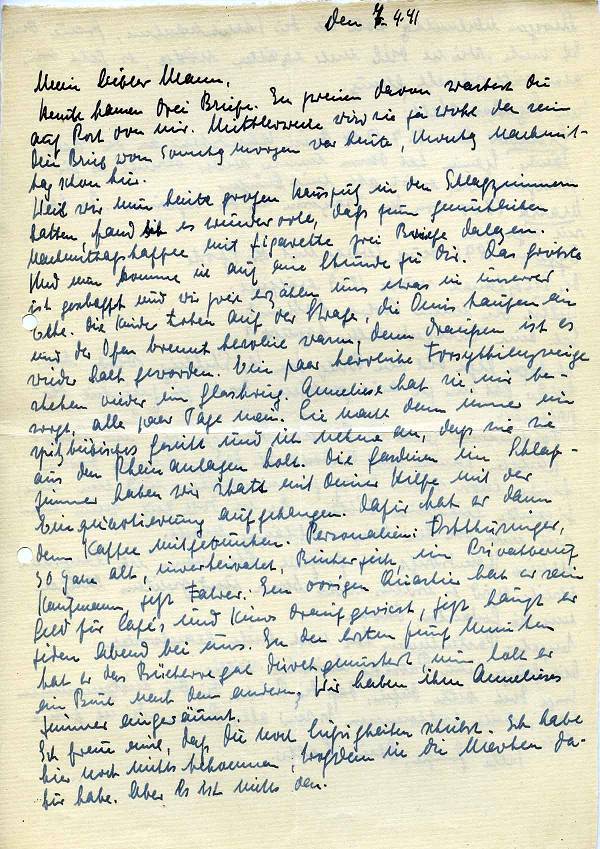 Den 7. 4. 41
Mein lieber Mann,
heute kamen drei Briefe. In zweien davon wartest Du
auf Post von mir. Mittlerweile wird sie ja wohl da sein
Dein Brief vom Sonntag Morgen war heute, Montag Nachmit-
tag schon hier.
Weil wir nun heute großen Hausputz in den Schlafzimmern
hatten, fand ich es wundervoll, daß zum gemütlichen
Nachmittagskaffee mit Zigarette drei Briefe dalagen.
Und nun komme ich auf eine Stunde zu Dir. Das gröbste
ist geschafft und wir zwei erzählen uns etwas in unserer
Ehe. Die Kinder toben auf der Straße, die Omis kaufen ein
und der Ofen brennt herrlich warm, denn draußen ist es
wieder kalt geworden. Ein paar herrliche Forsythienzweige
stehen wieder im Glaskrug. Anneliese hat sie mir be-
sorgt, alle paar Tage neu. Sie macht dann immer ein
spitzbübisches Gesicht und ich nehme an, daß sie sie
aus den Rheinanlagen holt. Die Gardinen im Schlaf-
zimmer haben wir statt mit Deiner Hilfe mit der
Einquartierung aufgehangen. Dafür hat er dann
den Kaffee mitgetrunken. Personalien: Ostthüringer,
30 Jahre alt, unverheiratet, im Privatberuf
Kaufmann, jetzt Fahrer. Im vorigen Quartier hat er sein
Geld für Café's und Kinos draufgesetzt, jetzt hängt er
jeden Abend bei uns. In den ersten fünf Minuten
hat er das Bücherregal durchgemustert, nun holt er
ein Buch nach dem andern. Wir haben ihm Annelieses
Zimmer eingeräumt.
Ich freue mich, daß Du noch Süßigkeiten schickst. Ich habe
hier noch nichts bekommen, trotzdem ich die Marken da-
für habe. Aber es ist nichts da.